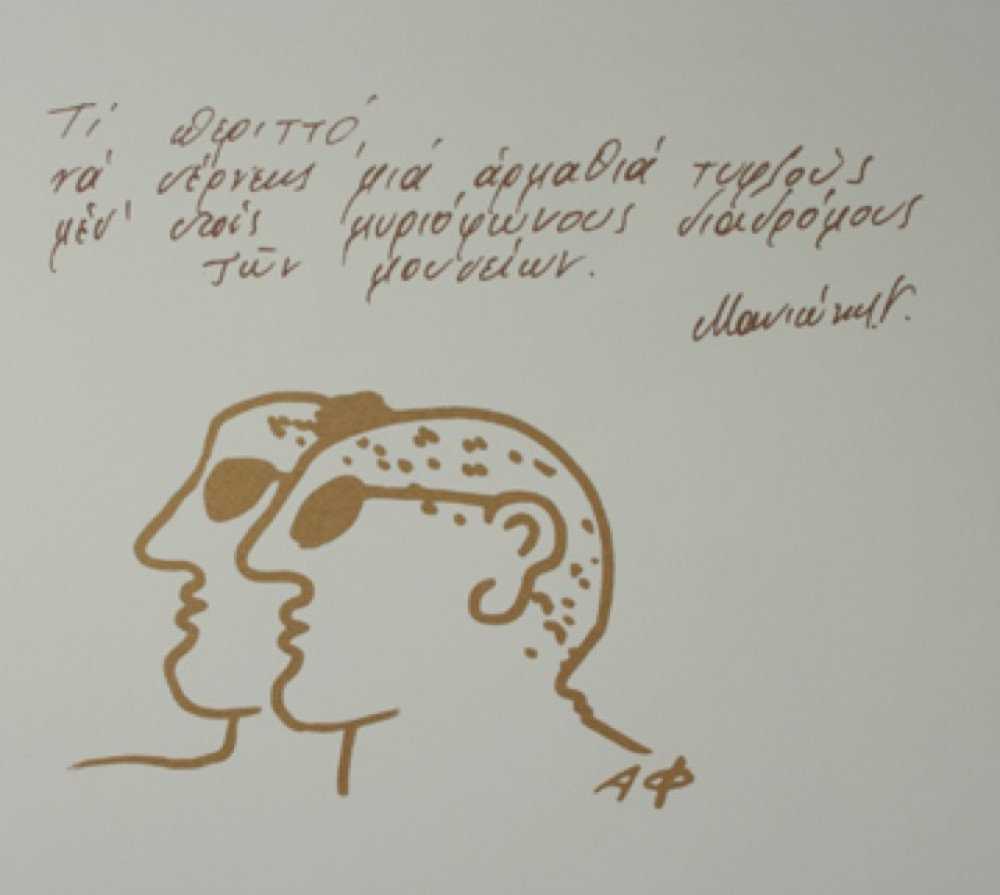 Τί περιττό,
νά σέρνεις μιά ἁρμαθιά τυφλούς
μέσ' στούς μυριόφωνους διαδρόμους
τῶν μουσείων.
Μανιώτης Γ.
ΑΦ